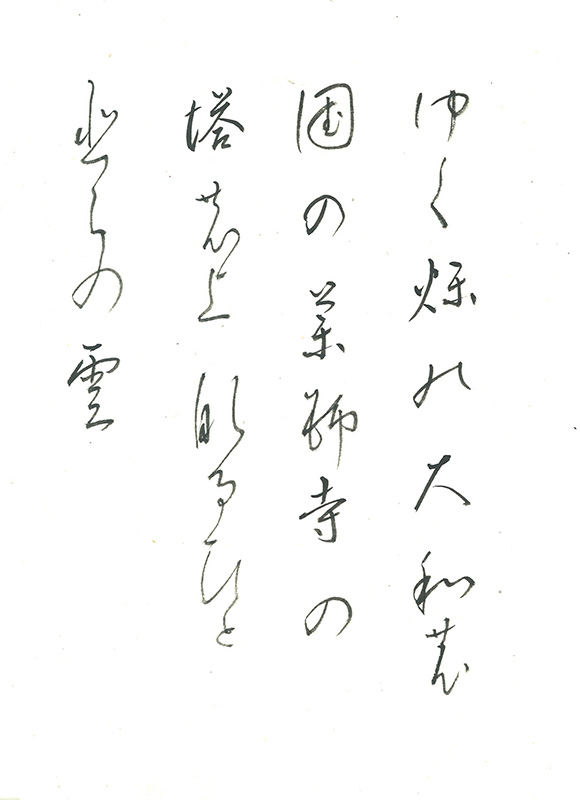 ゆく秋の大和の
国の薬師寺の
塔の上なるひと
ひらの雲